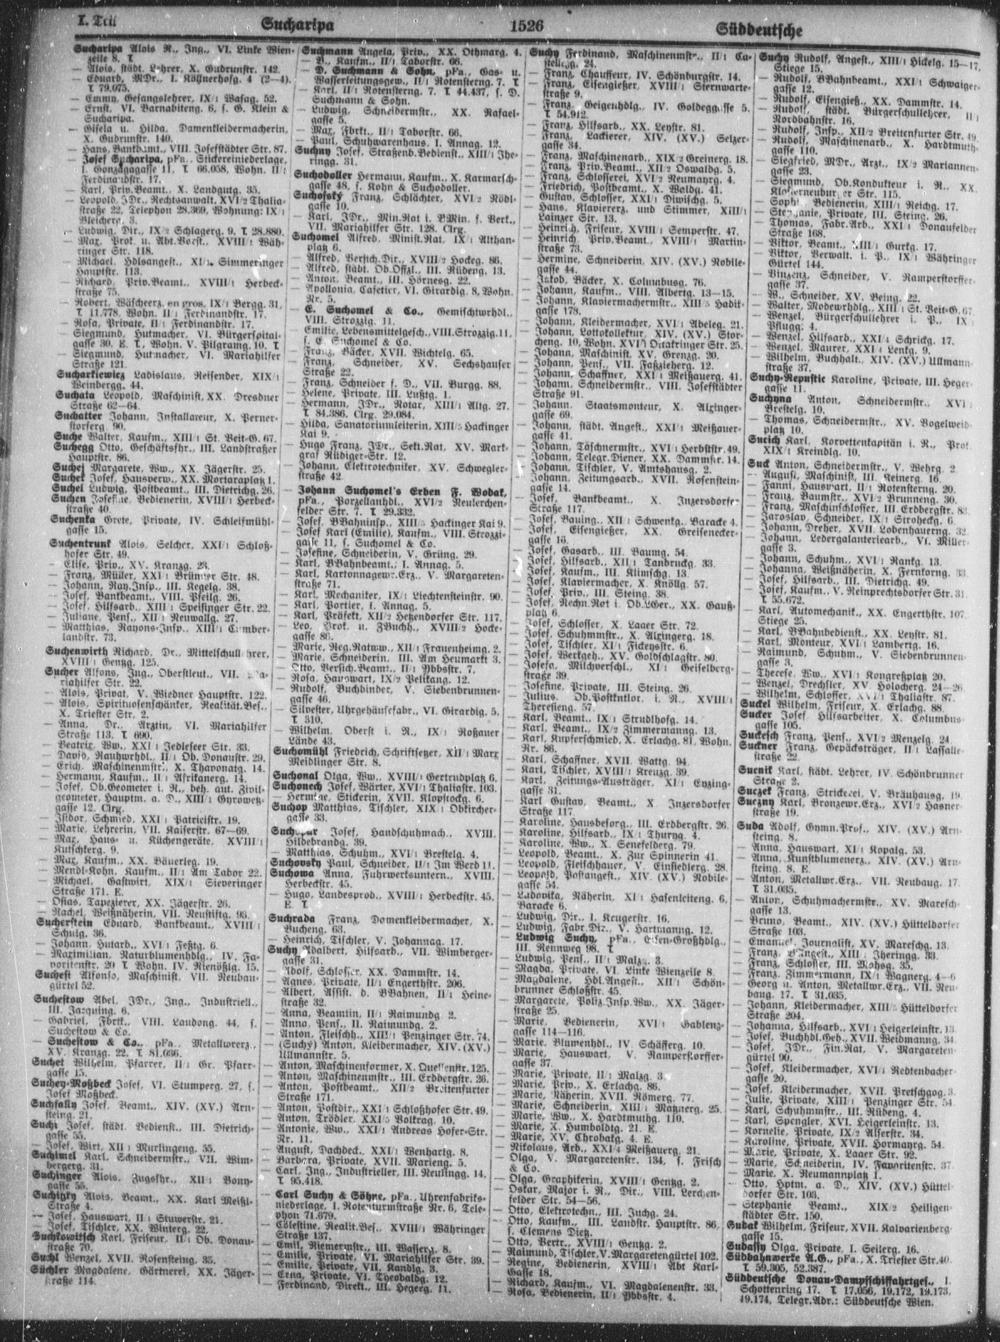 I. Teil
Sucharipa
1526
Süddeutsche
Sucharipa Alois R., Ing., VI. Linke Wien-
zeile 8. T
— Alois, städt. Lehrer, X. Gudrunstr. 142.
— Eduard, MDr., I. Köllnerhofg. 4 (2—4).
T 79.075.
— Emma, Gesangslehrer, IX/1 Wasag. 52.
— Ernst, VI. Barnabiteng. 6, s. G. Klein &
Sucharipa.
— Gisela u. Hilda, Damenkleidermacherin,
X. Gudrunstr. 140.
— Hans, Bankbmt., VIII. Josefstädter Str. 87.
— Josef Sucharipa, pFa., Stickereiniederlage,
I. Gonzagagasse 11. T 66.058, Wohn. II/1
Ferdinandstr. 17.
— Karl, Priv.Beamt., X. Landgutg. 35.
— Leopold, JDr., Rechtsanwalt, XVI/2 Thalia-
straße 22, Telephon 28.369, Wohnung: IX/1
Bleicherg. 3.
— Ludwig, Dir., IX/2 Schlagerg. 9. T 28.880.
— Max, Prok. u. Abt.Vorst., XVIII/1 Wäh-
ringer Str. 118.
— Michael, Hdlsangest., XI/1 Simmeringer
Hauptstr. 113.
— Richard, Priv.Beamt., XVIII/1 Herbeck-
straße 75.
— Robert, Wäscherz. en gros, IX/1 Bergg. 31,
T 11.778, Wohn. II/1 Ferdinandstr. 17.
— Rosa, Private, II/1 Ferdinandstr. 17.
— Siegmund, Hutmacher, VI. Bürgerspital-
gasse 30, E. T, Wohn. V. Pilgramg. 10. T
— Siegmund, Hutmacher, VI. Mariahilfer
Straße 121.
Sucharkiewicz Ladislaus, Reisender, XIX/1
Weinbergg. 44.
Suchata Leopold, Maschinist, XX. Dresdner
Straße 62—64.
Suchatter Johann, Installateur, X. Perner-
storferg. 90.
Suche Walter, Kaufm., XIII/1 St. Veit-G. 67.
Suchegg Otto, Geschäftsfhr., III. Landstraßer
Hauptstr. 86.
Suchej Margarete, Ww., XX. Jägerstr. 25.
Suchel Josef, Hausverw., XX. Mortaraplatz 1.
Suchel Ludwig, Postbeamt., III. Dietrichg. 26.
Suchen Josefine, Bedienerin, XVIII/1 Herbeck-
straße 40.
Suchenka Grete, Private, IV. Schleifmühl-
gasse 15.
Suchentrunk Alois, Selcher, XXI/1 Schloß-
hofer Str. 49.
— Elise, Priv., XV. Kranzg. 23.
— Franz, Müller, XXI/1 Brünner Str. 48.
— Johann, Ray.Insp., III. Kegelg. 38.
— Josef, Bankbeamt., VIII. Pfeilg. 26.
— Josef, Hilfsarb., XIII/1 Speisinger Str. 22.
— Juliane, Pens., XII/1 Neuwallg. 27.
— Matthias, Rayons-Insp., XIII/1 Cumber-
landstr. 73.
Suchenwirth Richard, Dr., Mittelschullehrer,
XVIII/1 Gentzg. 125.
Sucher Alfons, Ing., Oberstleut., VII. Ma-
riahilfer Str. 22.
— Alois, Privat, V. Wiedner Hauptstr. 122.
— Alois, Spirituosenschänker, Realität.Bes.,
X. Triester Str. 2.
— Anna, Dr., Ärztin, VI. Mariahilfer
Straße 113. T 690.
— Beatrix, Ww., XXI/1 Jedleseer Str. 33.
— David, Rauhwrhdl., II/1 Ob. Donaustr. 29.
— Erich, Maschinenmstr., X. Thavonatg. 14.
— Hermann, Kaufm., II/1 Afrikanerg. 14.
— Josef, Ob.Geometer i. R., beh. aut. Zivil-
geometer, Hauptm. a. D., XIII/1 Gyroweß-
gasse 12. Clrg.
— Isidor, Schmied, XXI/1 Patrizistr. 19.
— Marie, Lehrerin, VII. Kaiserstr. 67—69.
— Max, Haus- u. Küchengeräte, XVIII/1
Kutschkerg. 9.
— Max, Kaufm., XX. Bäuerleg. 19.
— Mendl-Kohn, Kaufm., II/1 Am Tabor 22.
— Michael, Gastwirt, XIX/1 Sieveringer
Straße 171. E.
— Osias, Tapezierer, XX. Jägerstr. 26.
— Rachel, Weißnäherin, VII. Neustiftg. 95.
Sucherstein Eduard, Bankbeamt., XVIII/1
Schulg. 36.
— Johann, Hutarb., XVI/1 Festg. 6.
— Maximilian, Naturblumenhdlg., IV. Fa-
voritenstr. 20. T Wohn. IV. Rienößlg. 15.
Suchesi Alfonso, Maschinist, VII. Neubau-
gürtel 52.
Suchestow Abel, JDr., Ing., Industriell.,
III. Jacquing. 6.
— Gabriel, Fbrkt., VIII. Laudong. 44, s.
Suchestow & Co.
— Suchestow & Co., pFa., Metallwerz.,
XV. Kranzg. 22. T 81.096.
Suchet Wilhelm, Pfarrer, II/1 Gr. Pfarr-
gasse 15.
Suchey-Moßbeck Josef, VI. Stumperg. 27, s.
Josef Moßbeck.
Suchfally Josef, Beamt., XIV. (XV.) Arn-
steing. 21.
Suchi Josef, städt. Bedienst., III. Dietrich-
gasse 55.
— Josef, Wirt, XII/1 Murlingeng. 35.
Suchiml Karl, Schneidermstr., VII. Wim-
bergerg. 31.
Suchinger Alois, Zugsfhr., XII/1 Bony-
gasse 55.
Suchitzky Alois, Beamt., XX. Karl Meißl-
Straße 4.
— Josef, Hauswart, II/1 Stuwerstr. 21.
— Josef, Tischler, XX. Winterg. 22.
Suchkowitsch Karl, Friseur, II/1 Ob. Donau-
straße 70.
Suchl Wenzel, XVII. Rosensteing. 35.
Süchler Magdalene, Gärtnerei, XX. Jäger-
straße 114.
Suchmann Angela, Priv., XX. Othmarg. 4.
— B., Kaufm., II/1 Taborstr. 66.
— D. Suchmann & Sohn, pFa., Gas- u.
Wasserleitungsgew., II/1 Rotensterng. 7. T
— Karl, II/1 Rotensterng. 7. T 44.437, s. D.
Suchmann & Sohn.
— Ludwig, Schneidermstr., XX. Rafael-
gasse 5.
— Max, Fbrkt., II/1 Taborstr. 66.
— Paul, Schuhwarenhaus, I. Annag. 12.
Suchny Josef, Straßenb.Bedienst., XIII/1 Jhe-
ringg. 31.
Suchodoller Hermann, Kaufm., X. Karmarsch-
gasse 48, s. Kohn & Suchodoller.
Suchofsky Franz, Schlächter, XVI/2 Rödl-
gasse 10.
— Karl, JDr., Min.Rat i. BMin. f. Verk.,
VII. Mariahilfer Str. 128. Clrg.
Suchomel Alfred, Minist.Rat, IX/1 Althan-
platz 6.
— Alfred, Versich.Dir., XVIII/2 Hockeg. 86.
— Alfred, städt. Ob.Offzl., III. Rüdeng. 13.
— Anton, Beamt., III. Hörnesg. 22.
— Apollonia, Cafetier, VI. Girardig. 8, Wohn.
Nr. 5.
— E. Suchomel & Co., Gemischtwrhdl.,
VIII. Strozzig. 11.
— Emilie, Lebensmittelgesch., VIII. Strozzig. 11,
s. E. Suchomel & Co.
— Franz, Bäcker, XVII. Wichtelg. 65.
— Franz, Schneider, XV. Sechshauser
Straße 22.
— Franz, Schneider f. D., VII. Burgg. 88.
— Helene, Private, III. Lustg. 1.
— Hermann, JDr., Notar, XIII/1 Altg. 27.
T 84.386. Clrg. 29.084.
— Hilda, Sanatoriumleiterin, XIII/5 Hackinger
Kai 9.
— Hugo Franz, JDr., Sekt.Rat, XV. Mark-
graf Rüdiger-Str. 12.
— Johann, Elektrotechniker, XV. Schwegler-
straße 42.
— Johann Suchomel's Erben F. Wodak,
pFa., Porzellanhdl., XVI/2 Neulerchen-
felder Str. 7. T 29.332.
— Josef, BBahninsp., XIII/5 Hackinger Kai 9.
— Josef Karl (Emilie), Kaufm., VIII. Strozzi-
gasse 11, s. E. Suchomel & Co.
— Josefine, Schneiderin, V. Grüng. 29.
— Karl, BBahnbeamt., I. Annag. 5.
— Karl, Kartonnagewr.Erz., V. Margareten-
straße 71.
— Karl, Mechaniker, IX/1 Liechtensteinstr. 90.
— Karl, Portier, I. Annag. 5.
— Karl, Präfekt, XII/2 Hetzendorfer Str. 117.
— Leo, Prok. u. FBuchh., XVIII/2 Hocke-
gasse 86.
— Marie, Reg.Ratww., XII/1 Frauenheimg. 2.
— Marie, Schneiderin, III. Am Heumarkt 3.
— Otto, Versich.Beamt., II/1 Ybbsstr. 7.
— Rosa, Hauswart, IX/2 Pelikang. 12.
— Rudolf, Buchbinder, V. Siebenbrunnen-
gasse 46.
— Silvester, Uhrgehäusefabr., VI. Girardig. 5.
T 310.
— Wilhelm, Oberst i. R., IX/1 Roßauer
Lände 43.
Suchomühl Friedrich, Schriftsetzer, XII/1 Marx
Meidlinger Str. 8.
Suchonal Olga, Ww., XVIII/1 Gertrudplatz 6.
Suchonech Josef, Wärter, XVI/1 Thaliastr. 103.
— Hermine, Stickerin, XVII. Klopstockg. 6.
Suchop Matthias, Tischler, XIX/1 Obkircher-
gasse 33.
Josef, Handschuhmach., XVIII.
Hildebrandg. 39.
— Matthias, Schuhm., XVI/1 Brestelg. 4.
Suchovsky Paul, Schneider, II/1 Im Werd 11.
Suchowa Anna, Fuhrwerksuntern., XVIII.
Herbeckstr. 45.
— Hugo, Landesprod., XVIII/1 Herbeckstr. 45,
E. T
Suchrada Franz, Domenkleidermacher, X.
Bucheng. 63.
— Heinrich, Tischler, V. Johannag. 17.
Suchy Adalbert, Hilfsarb., VII. Wimberger-
gasse 31.
— Adolf, Schlosser, XX. Dammstr. 14.
— Agnes, Private, II/1 Engerthstr. 206.
— Albert, Assist. d. BBahnen, II/1 Heine-
straße 32.
— Anna, Beamtin, II/1 Raimundg. 2.
— Anna, Pens., II. Raimundg. 2.
— Anton, Fleischh., XIII/1 Penzinger Str. 74.
— (Suchy) Anton, Kleidermacher, XIV. (XV.)
Ullmannstr. 5.
— Anton, Maschinenformer, X. Quellenstr. 125.
— Anton, Maschinenmstr., III. Erdbergstr. 26.
— Anton, Postbeamt., XII/2 Breitenfurter
Straße 171.
— Anton, Postdir., XXI/1 Schloßhofer Str. 49.
— Anton, Trödler, XXI/5 Volkrag. 10.
— Antonie, Ww., XXI/1 Andreas Hofer-Str.
Nr. 11.
— August, Dachdeck., XXI/1 Wenhartg. 8.
— Barbara, Private, XVII. Marieng. 5.
— Carl, Ing., Industrieller, III. Neulingg. 14.
T 95.418.
— Carl Suchy & Söhne, pFa., Uhrenfabriks-
niederlage, I. Rotenturmstraße Nr. 6, Tele-
phon 71.679.
— Cölestine, Realit.Bes., XVIII/1 Währinger
Straße 137.
— Emil, Riemermstr., III. Wasserg. 8.
— Emilie, Private, VI. Mariahilfer Str. 39.
— Emilie, Private, VII. Kandlg. 3.
— Erna, Private, VI. Theobaldg. 12.
— Ferdinand, Direkt., III. Hegerg. 11.
Suchy Ferdinand, Maschinenmstr., II/1 Ca-
stelleg. 24.
— Franz, Chauffeur, IV. Schönburgstr. 14.
— Franz, Eisengießer, XVIII/1 Sternwarte-
straße 9.
— Franz, Geigenhdlg., IV. Goldeggasse 5.
T 54.912.
— Franz, Hilfsarb., XX. Leystr. 81.
— Franz, Lackierer, XIV. (XV.) Selzer-
gasse 34.
— Franz, Maschinenarb., XIX/2 Greinerg. 18.
— Franz, Priv.Beamt., XII/2 Oswaldg. 5.
— Franz, Schlosserei, XVI/2 Neumayrg. 4.
— Friedrich, Postbeamt., X. Waldg. 41.
— Gustav, Schlosser, XXI/1 Diwischg. 5.
— Hans, Klavierz. und Stimmer, XIII/1
Lainzer Str. 13.
— Heinrich, Friseur, XVIII/1 Semperstr. 47.
— Heinrich, Priv.Beamt., XVIII/1 Martin-
straße 73.
— Hermine, Schneiderin, XIV. (XV.) Robile-
gasse 44.
— Jakob, Bäcker, X. Columbusg. 76.
— Johann, Kaufm., VIII. Albertg. 13—15.
— Johann, Klaviermachermstr., XIII/5 Hadik-
gasse 178.
— Johann, Kleidermacher, XVI/1 Abeleg. 21.
— Johann, Lottokollektur, XIV. (XV.) Stor-
cheng. 10, Wohn. XVI/1 Ottakringer Str. 25.
— Johann, Maschinist, XV. Grenzg. 20.
— Johann, Pens., VII. Faßzieherg. 12.
— Johann, Schaffner, XXI/1 Meißauerg. 41.
— Johann, Schneidermstr., VIII. Josefstädter
Straße 91.
— Johann, Staatsmonteur, X. Alxinger-
gasse 69.
— Johann, städt. Angest., XXI/1 Meißauer-
gasse 41.
— Johann, Täschnermstr., XVI/1 Herbststr. 49.
— Johann, Telegr.Diener, XX. Dammstr. 14.
— Johann, Tischler, V. Amtshausg. 2.
— Johann, Zeitungsarb., XVII. Rosenstein-
gasse 14.
— Josef, Bankbeamt., X. Inzersdorfer
Straße 117.
— Josef, Bauing., XII/1 Schwenkg. Baracke 4.
— Josef, Eisengießer, XX. Greisenecker-
gasse 16.
— Josef, Gasarb., III. Baumg. 54.
— Josef, Hilfsarb., XII/1 Tanbruckg. 33.
— Josef, Kaufm., III. Klimschg. 13.
— Josef, Klaviermacher, X. Knöllg. 57.
— Josef, Priv., III. Steing. 38.
— Josef, Rechn.Rat i. Ob.LGer., XX. Gauß-
platz 6.
— Josef, Schlosser, X. Laaer Str. 72.
— Josef, Schuhmstr., X. Alxingerg. 18.
— Josef, Tischler, XI/1 Fickeysstr. 6.
— Josef, Werkgeh., XV. Goldschlagstr. 80.
— Josefa, Milchverschl., XI/1 Geiselberg-
straße 39.
— Josefine, Private, III. Steing. 26.
— Julius, Ob.Postkntlor. i. R., XVIII/1
Theresieng. 57.
— Karl, Beamt., IX/1 Strudlhofg. 14.
— Karl, Beamt., IX/2 Zimmermanng. 13.
— Karl, Kupferschmied, X. Erlachg. 81, Wohn.
Nr. 86.
— Karl, Schaffner, XVII. Wattg. 94.
— Karl, Tischler, XVIII/1 Kreuzg. 39.
— Karl, Zeitungs-Austräger, XI/1 Enzing-
gasse 31.
— Karl Gustav, Beamt., X. Inzersdorfer
Straße 117.
— Karoline, Hausbesorg., III. Erdbergstr. 26.
— Karoline, Hilfsarb., IX/1 Thurng. 4.
— Karoline, Ww., X. Senefelderg. 79.
— Leopold, Beamt., X. Zur Spinnerin 41.
— Leopold, Fleischhauer, V. Einsiedlerg. 28.
— Leopold, Postangest., XIV. (XV.) Robile-
gasse 54.
— Ludovika, Näherin, XI/1 Hasenleiteng. 6,
Baracke 6.
— Ludwig, Dir., I. Krugerstr. 16.
— Ludwig, Fabr.Dir., V. Hartmanng. 12.
— Ludwig Suchy, pFa., Eisen-Großhdlg.,
III. Rennweg 98. T
— Ludwig, Pens., II/1 Malzg. 3.
— Magda, Private, VI. Linke Wienzeile 8.
— Magdalene, Hdl.Angest., XII/1 Schön-
brunner Schloßstr. 45.
— Margarete, Poliz.Insp.Ww., XX. Jäger-
straße 25.
— Marie, Bedienerin, XVI/1 Gablenz-
gasse 114—116.
— Marie, Blumenhdl., IV. Schäfferg. 10.
— Marie, Hauswart, V. Ramperstorffer-
gasse 37.
— Marie, Private, II/1 Malzg. 3.
— Marie, Priv., X. Erlachg. 86.
— Marie, Näherin, XVII. Römerg. 77.
— Marie, Schneiderin, XIII/1 Maynerg. 25.
— Marie, Ww., X. Hardtmuthg. 110.
— Marie, X. Humboldtg. 21. E.
— Marie, XV. Chrobakg. 4. E.
— Nikolaus, Arb., XXI/4 Meißauerg. 21.
— Olga, V. Margaretenstr. 134, s. Frisch
& Co.
— Olga, Graphikerin, XVIII/1 Gentzg. 2.
— Oskar, Major i. R., Dir., VIII. Lerchen-
felder Str. 54—56.
— Otto, Elektrotechn., III. Juchg. 24.
— Otto, Kaufm., III. Landstr. Hauptstr. 86,
s. Clemens Dietz.
— Otto, Vertr., XVIII/1 Gentzg. 2.
— Raimund, Tischler, V. Margaretengürtel 102.
— Regine, Bedienerin, XVIII/1 Abt Karl-
Gasse 18.
— Richard, Kaufm., VI. Magdalenenstr. 33.
— Rosa, Bedienerin, II/1 Ybbsstr. 4.
Suchy Rudolf, Angest., XIII/1 Hickelg. 15—17,
Stiege 15.
— Rudolf, BBahnbeamt., XXI/1 Schwaiger-
gasse 12.
— Rudolf, Eisengieß., XX. Dammstr. 14.
— Rudolf, städt. Bürgerschullehrer, II/1
Nordbahnstr. 16.
— Rudolf, Insp., XII/2 Breitenfurter Str. 49.
— Rudolf, Maschinenarb., X. Hardtmuth-
gasse 110.
— Siegfried, MDr., Arzt, IX/2 Mariannen-
gasse 23.
— Siegmund, Ob.Kondukteur i. R., XX.
Klosterneuburger Str. 115.
— Sophie, Bedienerin, XIII/1 Reichg. 17.
— Stephanie, Private, III. Steing. 26.
— Thomas, Fabr.Arb., XXI/1 Donaufelder
Straße 168.
— Viktor, Beamt., XIII/1 Gurkg. 17.
— Viktor, Verwalt. i. P., IX/1 Währinger
Gürtel 144.
— Vinzenz, Schneider, V. Ramperstorffer-
gasse 37.
— W., Schneider, XV. Being. 22.
— Walter, Modewrhdlg., XIII/1 St. Veit-G. 67.
— Wenzel, Bürgerschullehrer i. P., IX/1
Pflugg. 4.
— Wenzel, Hilfsarb., XXI/4 Schrickg. 17.
— Wenzel, Maurer, XXI/1 Lenkg. 9.
— Wilhelm, Buchhalt., XIV. (XV.) Ullmann-
straße 37.
Suchy-Repustic Karoline, Private, III. Heger-
gasse 11.
Suchyna Anton, Schneidermstr., XVI/1
Brestelg. 10.
— Thomas, Schneidermstr., XV. Vogelweid-
platz 10.
Sucich Karl, Korvettenkapitän i. R., Prof.
XIX/1 Kreindlg. 10.
Suck Anton, Schneidermstr., V. Wehrg. 2.
— August, Maschinist, III. Reinerg. 16.
— Fanni, Hauswart, II/1 Rotensterng. 20.
— Franz, Baumstr., XVI/2 Brunneng. 30.
— Franz, Maschinschlosser, III. Erdbergstr. 83.
— Jaroslav, Schneider, IX/1 Strohec kg. 6.
— Johann, Dreher, XVII. Lobenhauerng. 32.
— Johann, Ledergalanteriearb., VI. Miller-
gasse 3.
— Johann, Schuhm., XVI/1 Rankg. 13.
— Johanna, Weißnäherin, X. Fernkorng. 33.
— Josef, Hilfsarb., III. Dietrichg. 49.
— Josef, Kaufm., V. Reinprechtsdorfer Str. 31.
T 55.672.
— Karl, Automechanik., XX. Engerthstr. 107,
Stiege 25.
— Karl, BBahnbedienst., XX. Leystr. 81.
— Karl, Monteur, XVI/1 Lambertg. 16.
— Raimund, Schuhm., V. Siebenbrunnen-
gasse 3.
— Therese, Ww., XVI/1 Kongreßplatz 20.
— Wenzel, Drechsler, XV. Holocherg. 24—26.
— Wilhelm, Schlosser, XVI/1 Thaliastr. 87.
Suckel Wilhelm, Friseur, X. Erlachg. 88.
Sucker Josef, Hilfsarbeiter, X. Columbus-
gasse 105.
Suckesch Franz, Pens., XVI/2 Menzelg. 24.
Suckner Franz, Gepäcksträger, II/1 Lassalle-
straße 22.
Sucnik Karl, städt. Lehrer, IV. Schönbrunner
Straße 2.
Suczek Franz, Strickerei, V. Bräuhausg. 19.
Suczny Karl, Bronzewr.Erz., XVI/2 Hasner-
straße 19.
Suda Adolf, Gymn.Prof., XIV. (XV.) Arn-
steing. 8.
— Anna, Hauswart, XI/1 Kopalg. 53.
— Anna, Kunstblumenerz., XIV. (XV.) Arn-
steing. 8. E.
— Anton, Metallwr.Erz., VII. Neubaug. 17.
T 31.035.
— Anton, Schuhmachermstr., XV. Marsch-
gasse 13.
— Bruno, Beamt., XIV. (XV.) Hütteldorfer
Straße 103.
— Emanuel, Journalist, XV. Mareschg. 13.
— Franz, B.Angest., XIII/1 Jheringg. 33.
— Franz, Schlosser, III. Mohsg. 35.
— Franz, Zimmermann, IX/1 Wagnerg. 4—6.
— Georg u. Anton, Metallwr.Erz., VII. Neu-
baug. 17. T 31.035.
— Johann, Kleidermacher, XIII/5 Hütteldorfer
Straße 204.
— Johanna, Hilfsarb., XVI/1 Heigerleinstr. 13.
— Josef, Buchhdl.Geh., XVII. Weidmanng. 34.
— Josef, JDr., Fin.Rat, V. Margareten-
gürtel 90.
— Josef, Kleidermacher, XVI/1 Redtenbacher-
gasse 20.
— Josef, Kleidermacher, XVII. Pretschgog. 3.
— Julie, Private, XIII/1 Penzinger Str. 54.
— Karl, Schuhmmstr., III. Rüdeng. 4.
— Karl, Spengler, XVI. Heigerleinstr. 13.
— Kornelie, Private, IX/2 Alserstr. 34.
— Karoline, Private, XVII. Hormayrg. 54.
— Marie, Private, X. Laaer Str. 92.
— Marie, Schneiderin, IV. Favoritenstr. 37.
— Marie, X. Neumannplatz 1.
— Otto, Hptm. a. D., XIV. (XV.) Hüttel-
dorfer Str. 103.
— Stephanie, Beamt., XIX/2 Heiligen-
städter Str. 150.
Sudak Wilhelm, Friseur, XVII. Kalvarienberg-
gasse 15.
Sudassy Olga, Private, I. Seilerg. 16.
Südbahnwerke A.G., pFa., X. Triester Str. 40.
T 59.305, 52.387.
Süddeutsche Donau-Dampfschiffahrtges., I.
Schottenring 17. T 17.056, 19.172, 19.173,
49.174, Telegr.Adr.: Süddeutsche Wien.